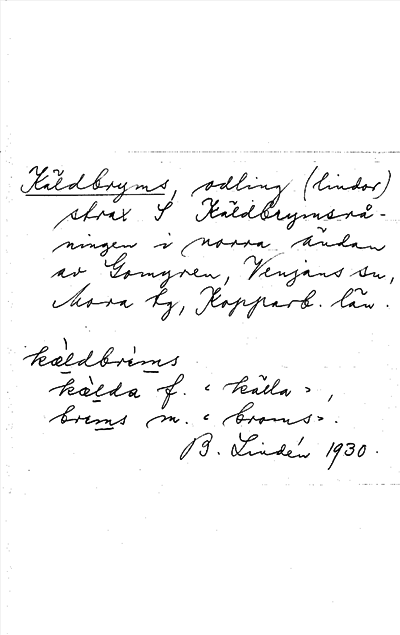 Käldbryms, odling (lindor)
strax S Käldbrymsrå-
ningen i norra ändan
av Gomyren, Venjans sn,
Mora tg, Kopparb. län.
kä̀ldbrè́ms
kä̀lda f. "källa",
brems m. "broms".
B. Lindén 1930.